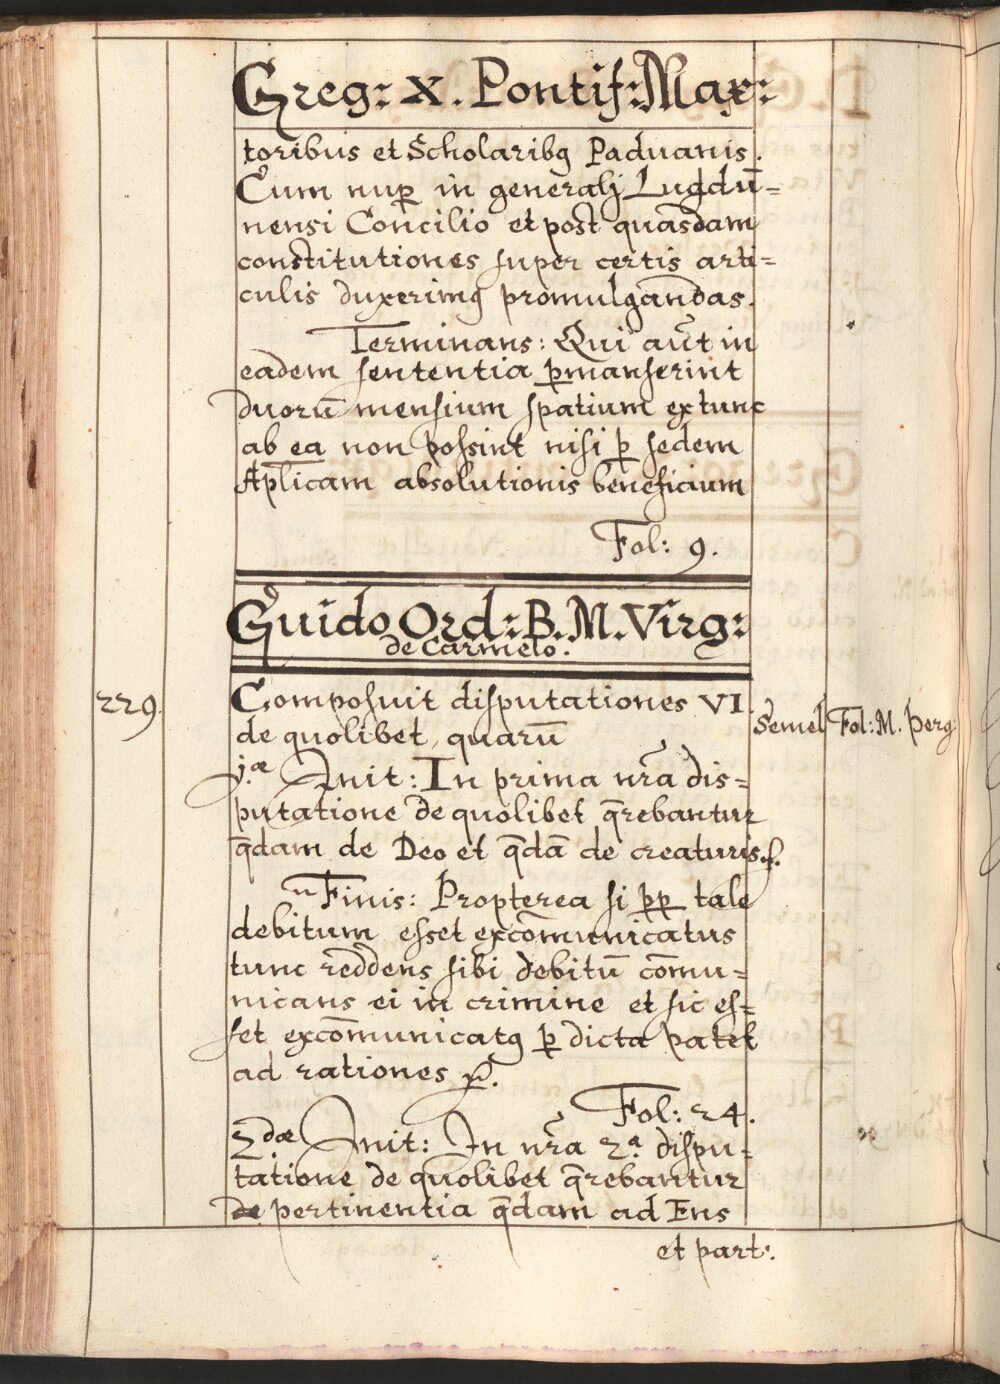 Greg: X. Pontif: Max:
toribus et Scholaribq Paduanis.
Cum nup̱ in generalj Lugdū=
nensi Concilio et post quasdam
constitutiones super certis arti=
culis duxerimq promulgandas.
Terminans: Qui aut̃ in
eadem sententia p̱manserint
duorū mensium spatium ex tunc
ab ea non possint nisi p̱ sedem
Apl̃icam absolutionis beneficium
Fol: 9.
Guido Ord: B. M. Virg:
de Carmelo.
229. Composuit disputationes VI. Semel Fol: M. perg:
de quolibet, quarū
j.æ Init: In prima nr̃a dis=
putatione de quolibet q̄rebantur
q̄dam de Deo et q̄dā de creaturis.
Finis: Propterea si pp̱ tale
debitum esset excōmunicatus
tunc reddens sibi debitū cōmu=
nicans ei in crimine et sic es=
set excōmunicatq p̱ dicta patet
ad rationes
Fol: 24.
2dæ Init: In nr̃a 2.a dispu=
tatione de quolibet q̄rebantur
de pertinentia q̄dam ad Ens
et part: